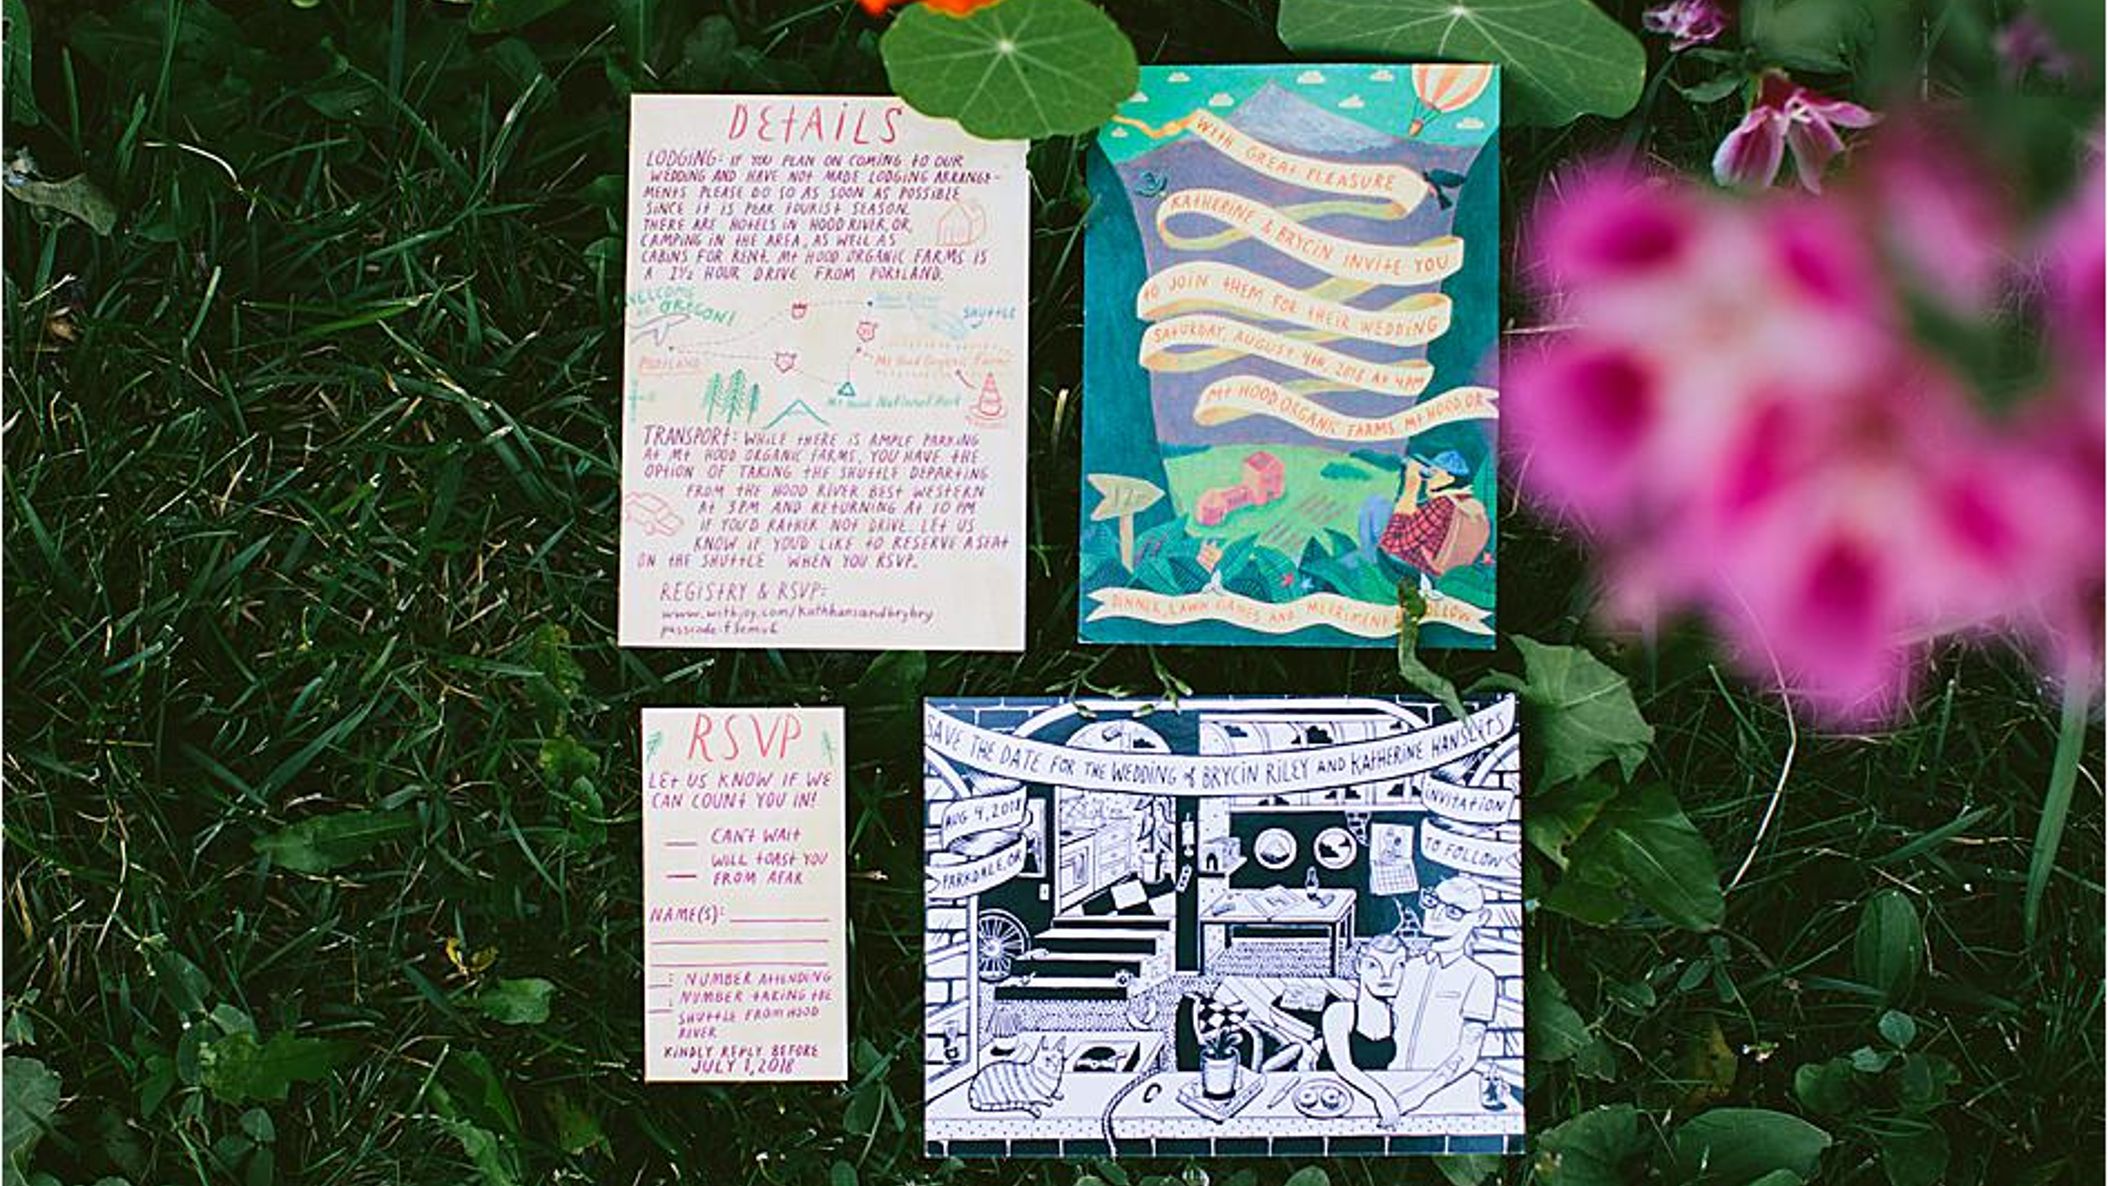 DETAILS
LODGING: IF YOU PLAN ON COMING TO OUR
WEDDING AND HAVE NOT MADE LODGING ARRANGE-
MENTS PLEASE DO SO AS SOON AS POSSIBLE
SINCE IT IS PEAK TOURIST SEASON.
THERE ARE HOTELS IN HOOD RIVER, OR,
CAMPING IN THE AREA, AS WELL AS
CABINS FOR RENT. Mt HOOD ORGANIC FARMS IS
A 1½ HOUR DRIVE FROM PORTLAND.
WELCOME
to OREGON!
Hood River
SHUTTLE
PORTLAND
Mt Hood Organic Farms
Mt Hood National Park
TRANSPORT: WHILE THERE IS AMPLE PARKING
AT Mt HOOD ORGANIC FARMS, YOU HAVE THE
OPTION OF TAKING THE SHUTTLE DEPARTING
FROM THE HOOD RIVER BEST WESTERN
AT 3PM AND RETURNING AT 10 PM
IF YOU'D RATHER NOT DRIVE. LET US
KNOW IF YOU'D LIKE TO RESERVE A SEAT
ON THE SHUTTLE WHEN YOU RSVP.
REGISTRY & RSVP:
www.withjoy.com/kathhansandbrybry
passcode:
WITH GREAT PLEASURE
KATHERINE & BRYCIN INVITE YOU
TO JOIN THEM FOR THEIR WEDDING
SATURDAY, AUGUST 4th, 2018 AT 4PM
Mt HOOD ORGANIC FARMS, Mt HOOD, OR
DINNER, LAWN GAMES AND MERRIMENT FOLLOW
RSVP
LET US KNOW IF WE
CAN COUNT YOU IN!
CAN'T WAIT
WILL TOAST YOU
FROM AFAR
NAME(S):
: NUMBER ATTENDING
: NUMBER TAKING THE
SHUTTLE FROM HOOD
RIVER
KINDLY REPLY BEFORE
JULY 1, 2018
SAVE THE DATE FOR THE WEDDING of BRYCIN RILEY AND KATHERINE HANSLITS
AUG 4, 2018
PARKDALE, OR
INVITATION
TO FOLLOW